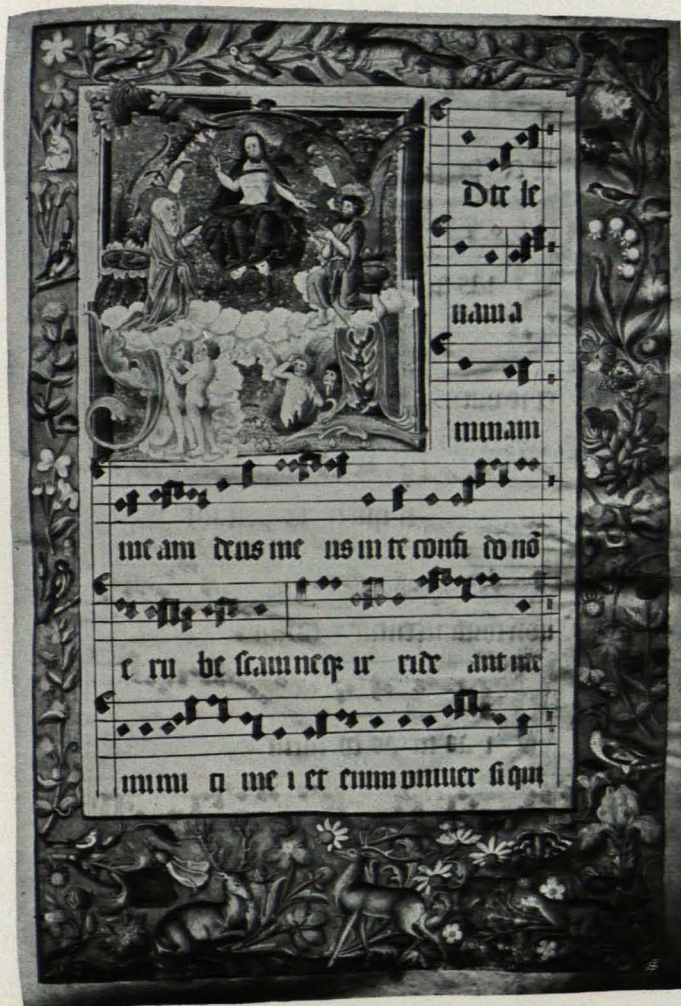 D te le
nam a
nimam
me am deus me us in te confi do nō
e ru be scam neqꝫ ir ride ant me
inimi ci me i et enim vniuer si qui